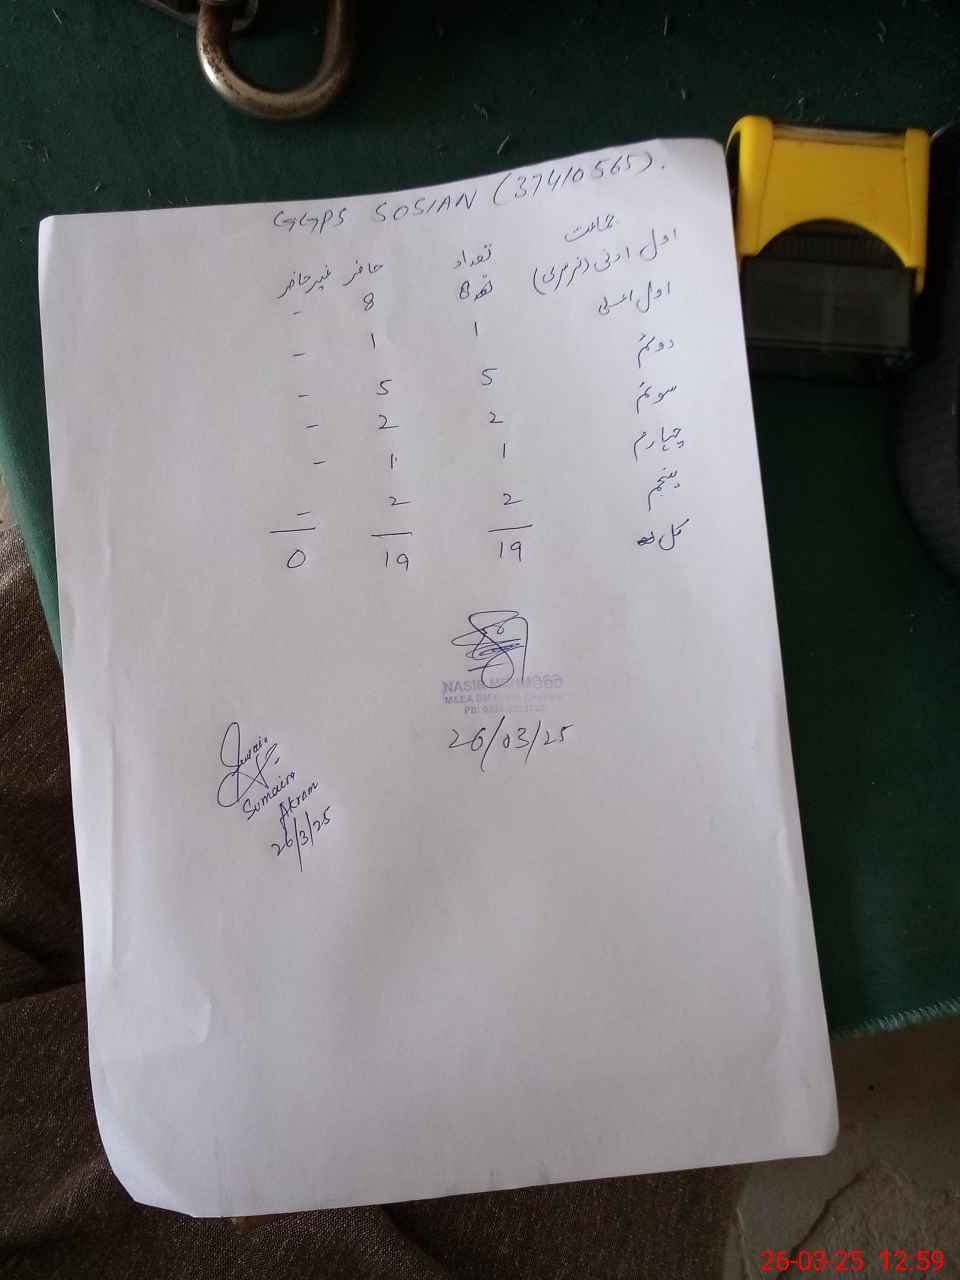 GGPS SOSIAN (37410565).
جماعت تعداد حاضر غیرحاضر
اول ادنی (نرسری) 8 8 -
اول اعلی 1 1 -
دوئم 5 5 -
سوئم 2 2 -
چہارم 1 1 -
پنجم 2 2 -
کل 19 19 0
NASIR MEHMOOD
26/03/25
Sumaira
Akram
26/3/25
26-03-25 12:59